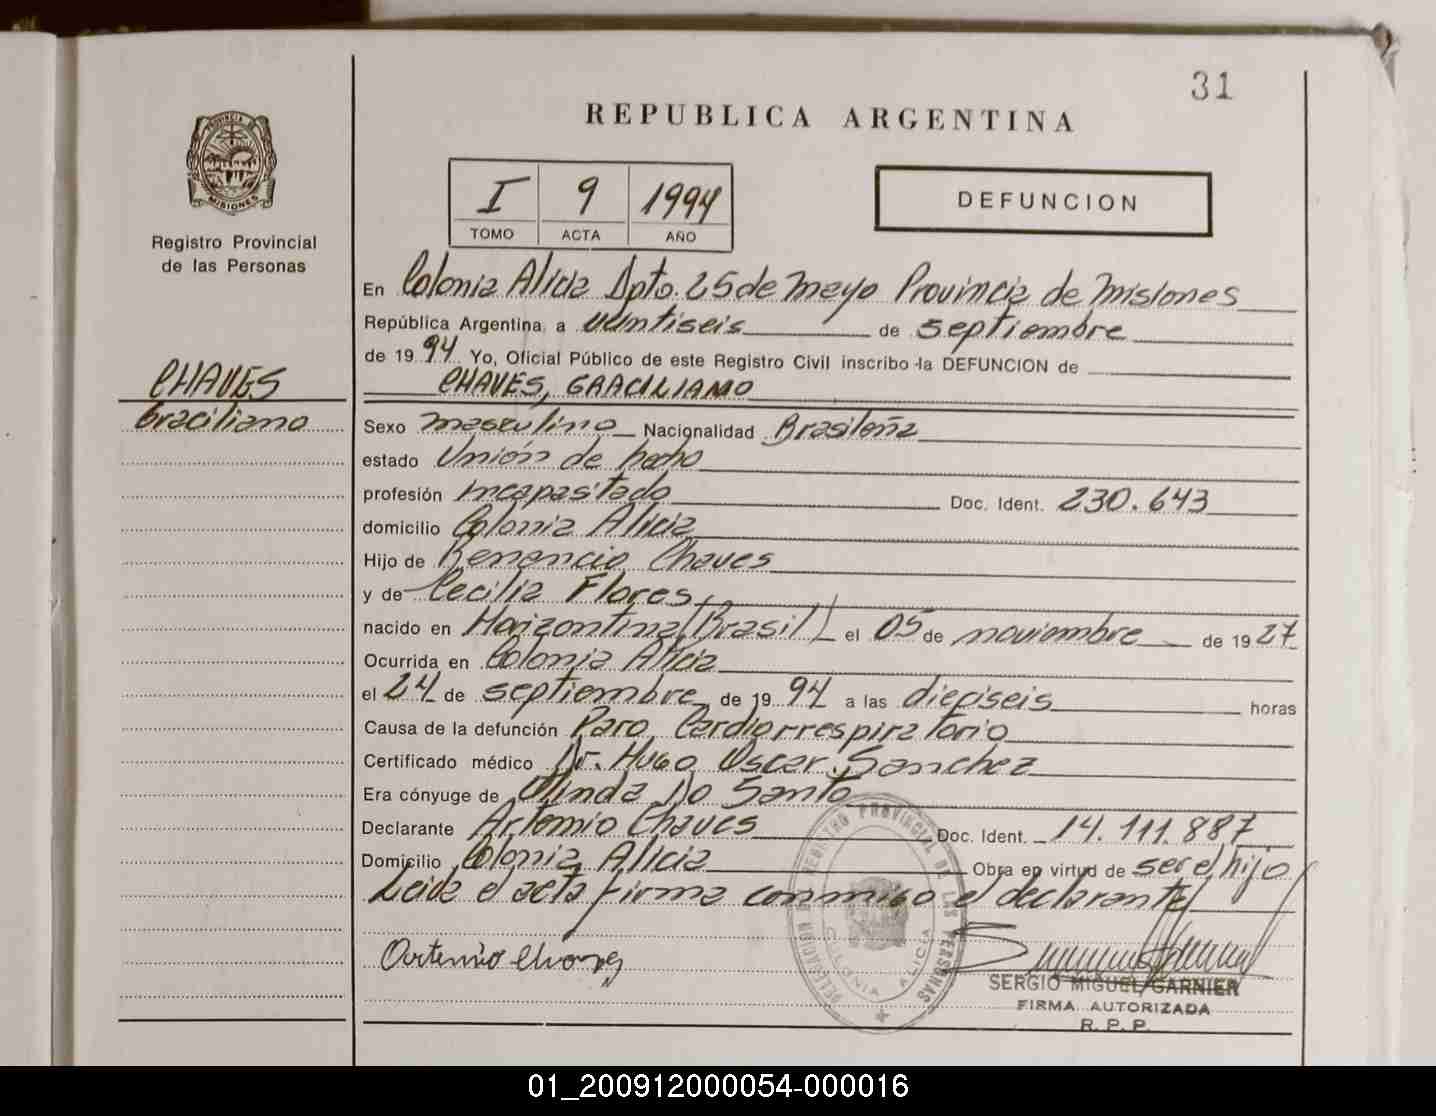 31
REPUBLICA ARGENTINA
PROVINCIA DE
MISIONES
Registro Provincial
de las Personas
I 9 1994
TOMO ACTA AÑO
DEFUNCION
En Colonia Alicia Dpto. 25 de Mayo Provincia de Misiones
República Argentina, a veintiseis de septiembre
de 1994 Yo, Oficial Público de este Registro Civil inscribo la DEFUNCION de
CHAVES, GRACILIANO
CHAVES
Graciliano
Sexo masculino Nacionalidad Brasileña
estado Unión de hecho
profesión incapasitado Doc. Ident. 230.643
domicilio Colonia Alicia
Hijo de Benancio Chaves
y de Cecilia Flores
nacido en Horizontina (Brasil) el 05 de noviembre de 1927
Ocurrida en Colonia Alicia
el 24 de septiembre de 1994 a las dieciseis horas
Causa de la defunción Paro Cardiorrespiratorio
Certificado médico Dr. Hugo Oscar Sanchez
Era cónyuge de Olinda Do Santo
Declarante Artemio Chaves Doc. Ident. 14.111.887
Domicilio Colonia Alicia Obra en virtud de ser el hijo
Leida el acta firma conmigo el declarante
Artemio Chaves
DELEGACION DE REGISTRO PROVINCIAL DE LAS PERSONAS
COLONIA ALICIA
SERGIO MIGUEL GARNIER
FIRMA AUTORIZADA
R. P. P.
01_200912000054-000016